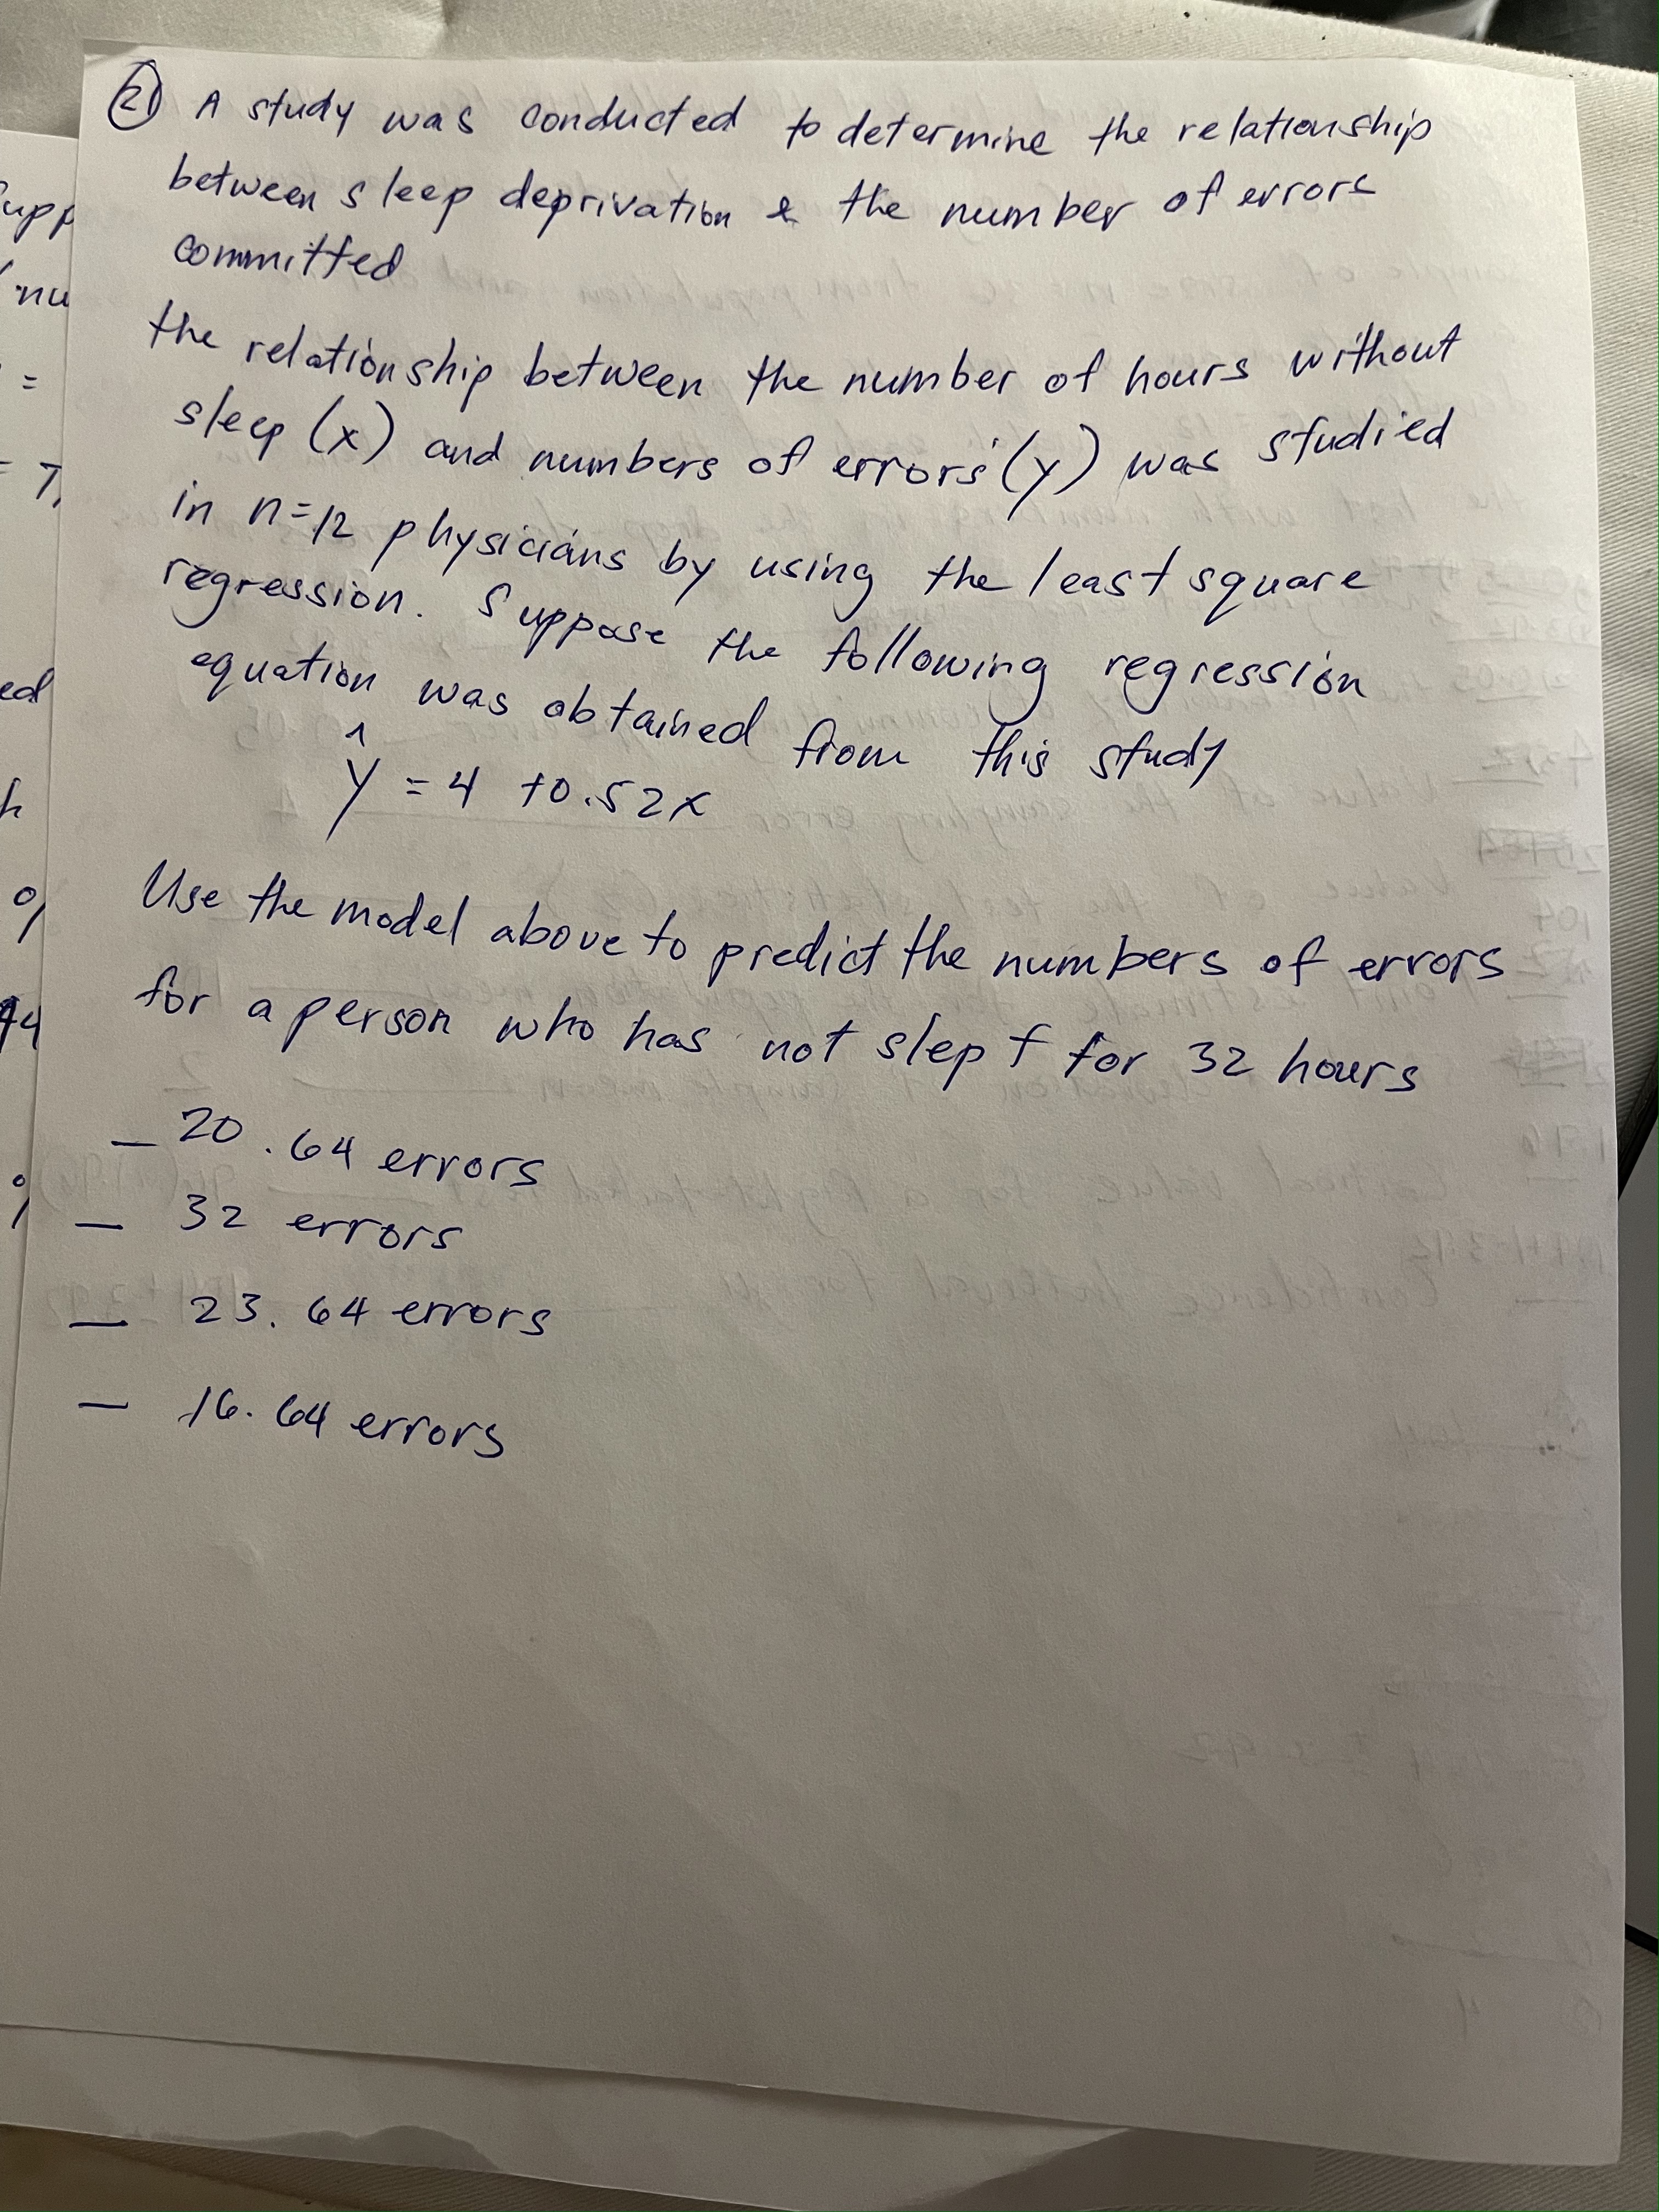 21 A study was conducted to determine the relationship
between sleep deprivation & the number of errors
committed
the relationship between the number of hours without
sleep (x) and numbers of errors (y) was studied
in n=12 physicians by using the least square
regression. Suppose the following regression
equation was obtained from this study
ŷ = 4 +0.52x
Use the model above to predict the numbers of errors
for a person who has not slept for 32 hours
— 20.64 errors
— 32 errors
— 23.64 errors
— 16.64 errors